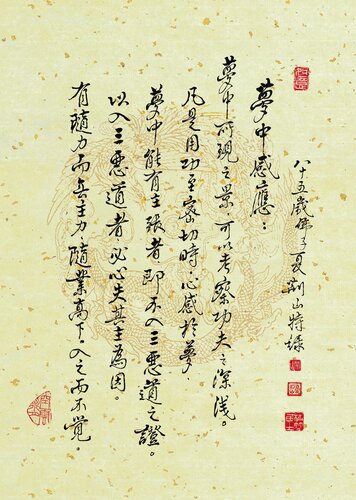 如意
八十五歲佛子夏荊山特錄
夢中感應：
夢中所現之景，可以考察功夫之深淺。
凡是用功至密切時，心感於夢，
夢中能有主張者，即不入三惡道之證。
以入三惡道者，必心失其主為因。
有隨力而無主力，隨業高下，入之而不覺。